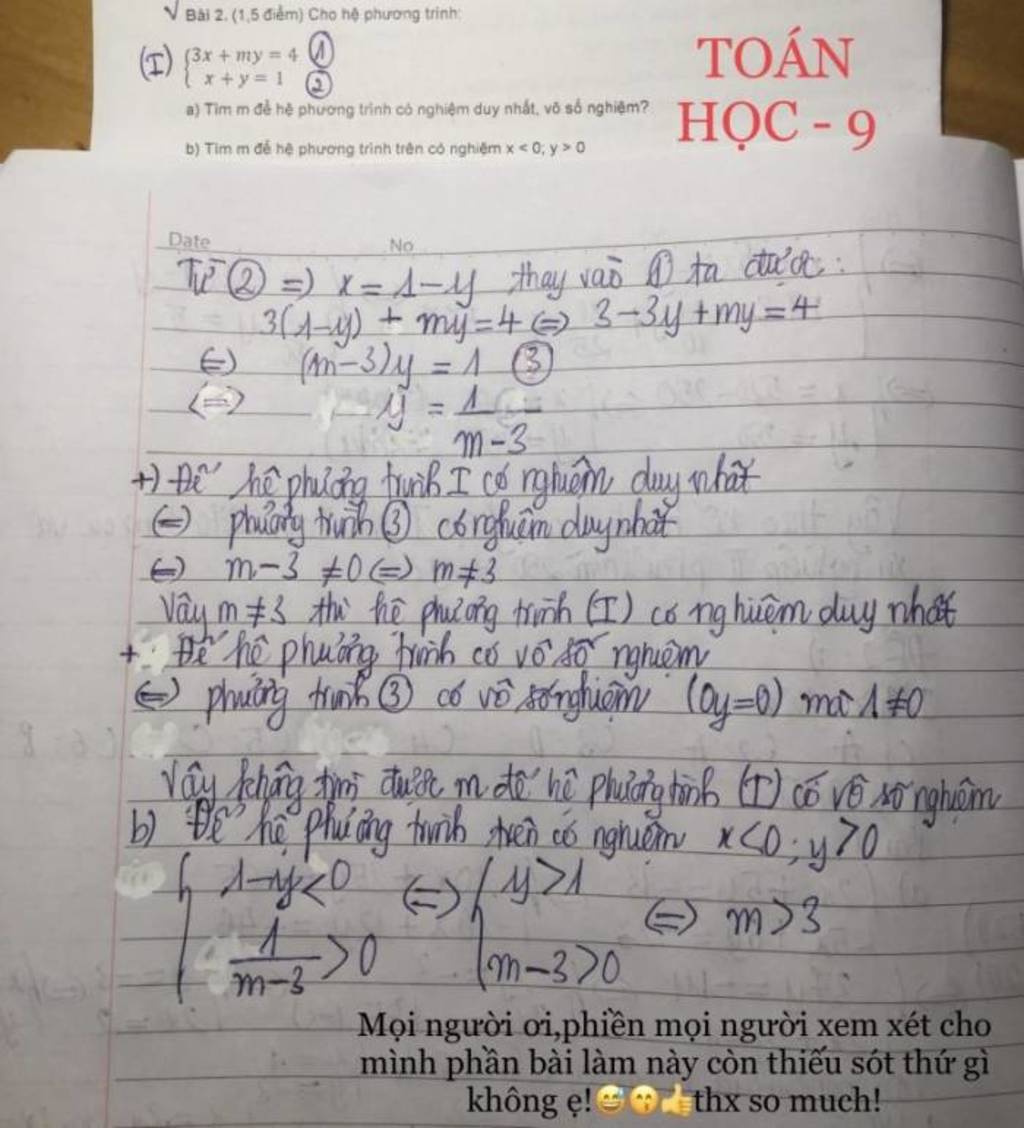 √ Bài 2. (1,5 điểm) Cho hệ phương trình:
(I) {3x + my = 4 ①
{x + y = 1 ②
TOÁN
HỌC - 9
a) Tìm m để hệ phương trình có nghiệm duy nhất, vô số nghiệm?
b) Tìm m để hệ phương trình trên có nghiệm x < 0; y > 0
Date No
Từ ② => x = 1-y thay vào ① ta được:
3(1-y) + my = 4 <=> 3-3y+my = 4
<=> (m-3)y = 1 ③
<=> y = 1/(m-3)
+) Để hệ phương trình I có nghiệm duy nhất
<=> phương trình ③ có nghiệm duy nhất
<=> m-3 ≠ 0 <=> m ≠ 3
Vậy m ≠ 3 thì hệ phương trình (I) có nghiệm duy nhất
+ Để hệ phương trình có vô số nghiệm
<=> phương trình ③ có vô số nghiệm (0y=0) mà 1 ≠ 0
Vậy không tìm được m để hệ phương trình (I) có vô số nghiệm
b) Để hệ phương trình trên có nghiệm x<0; y>0
{ 1-y<0 <=> { y>1
{ 1/(m-3) > 0 { m-3>0 <=> m>3
Mọi người ơi,phiền mọi người xem xét cho
mình phần bài làm này còn thiếu sót thứ gì
không ẹ!😅😙👍thx so much!